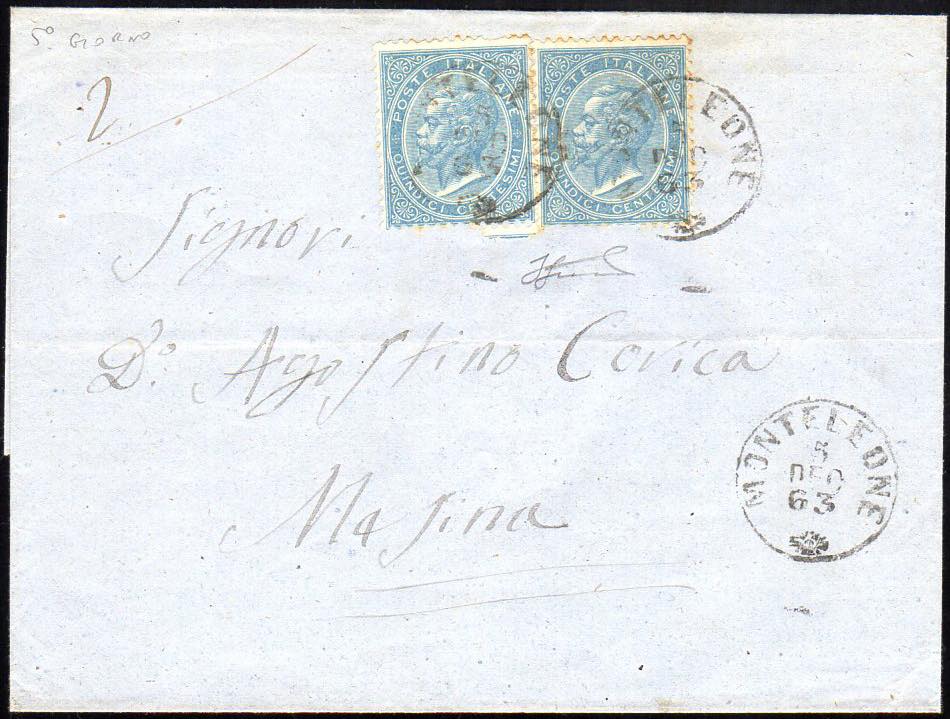 5° GIORNO
2
POSTE ITALIANE
QUINDICI CENTESIMI
POSTE ITALIANE
QUINDICI CENTESIMI
MONTELEONE
DEC
63
Signori
D.º Agostino Corica
Masina
MONTELEONE
5
DEC
63